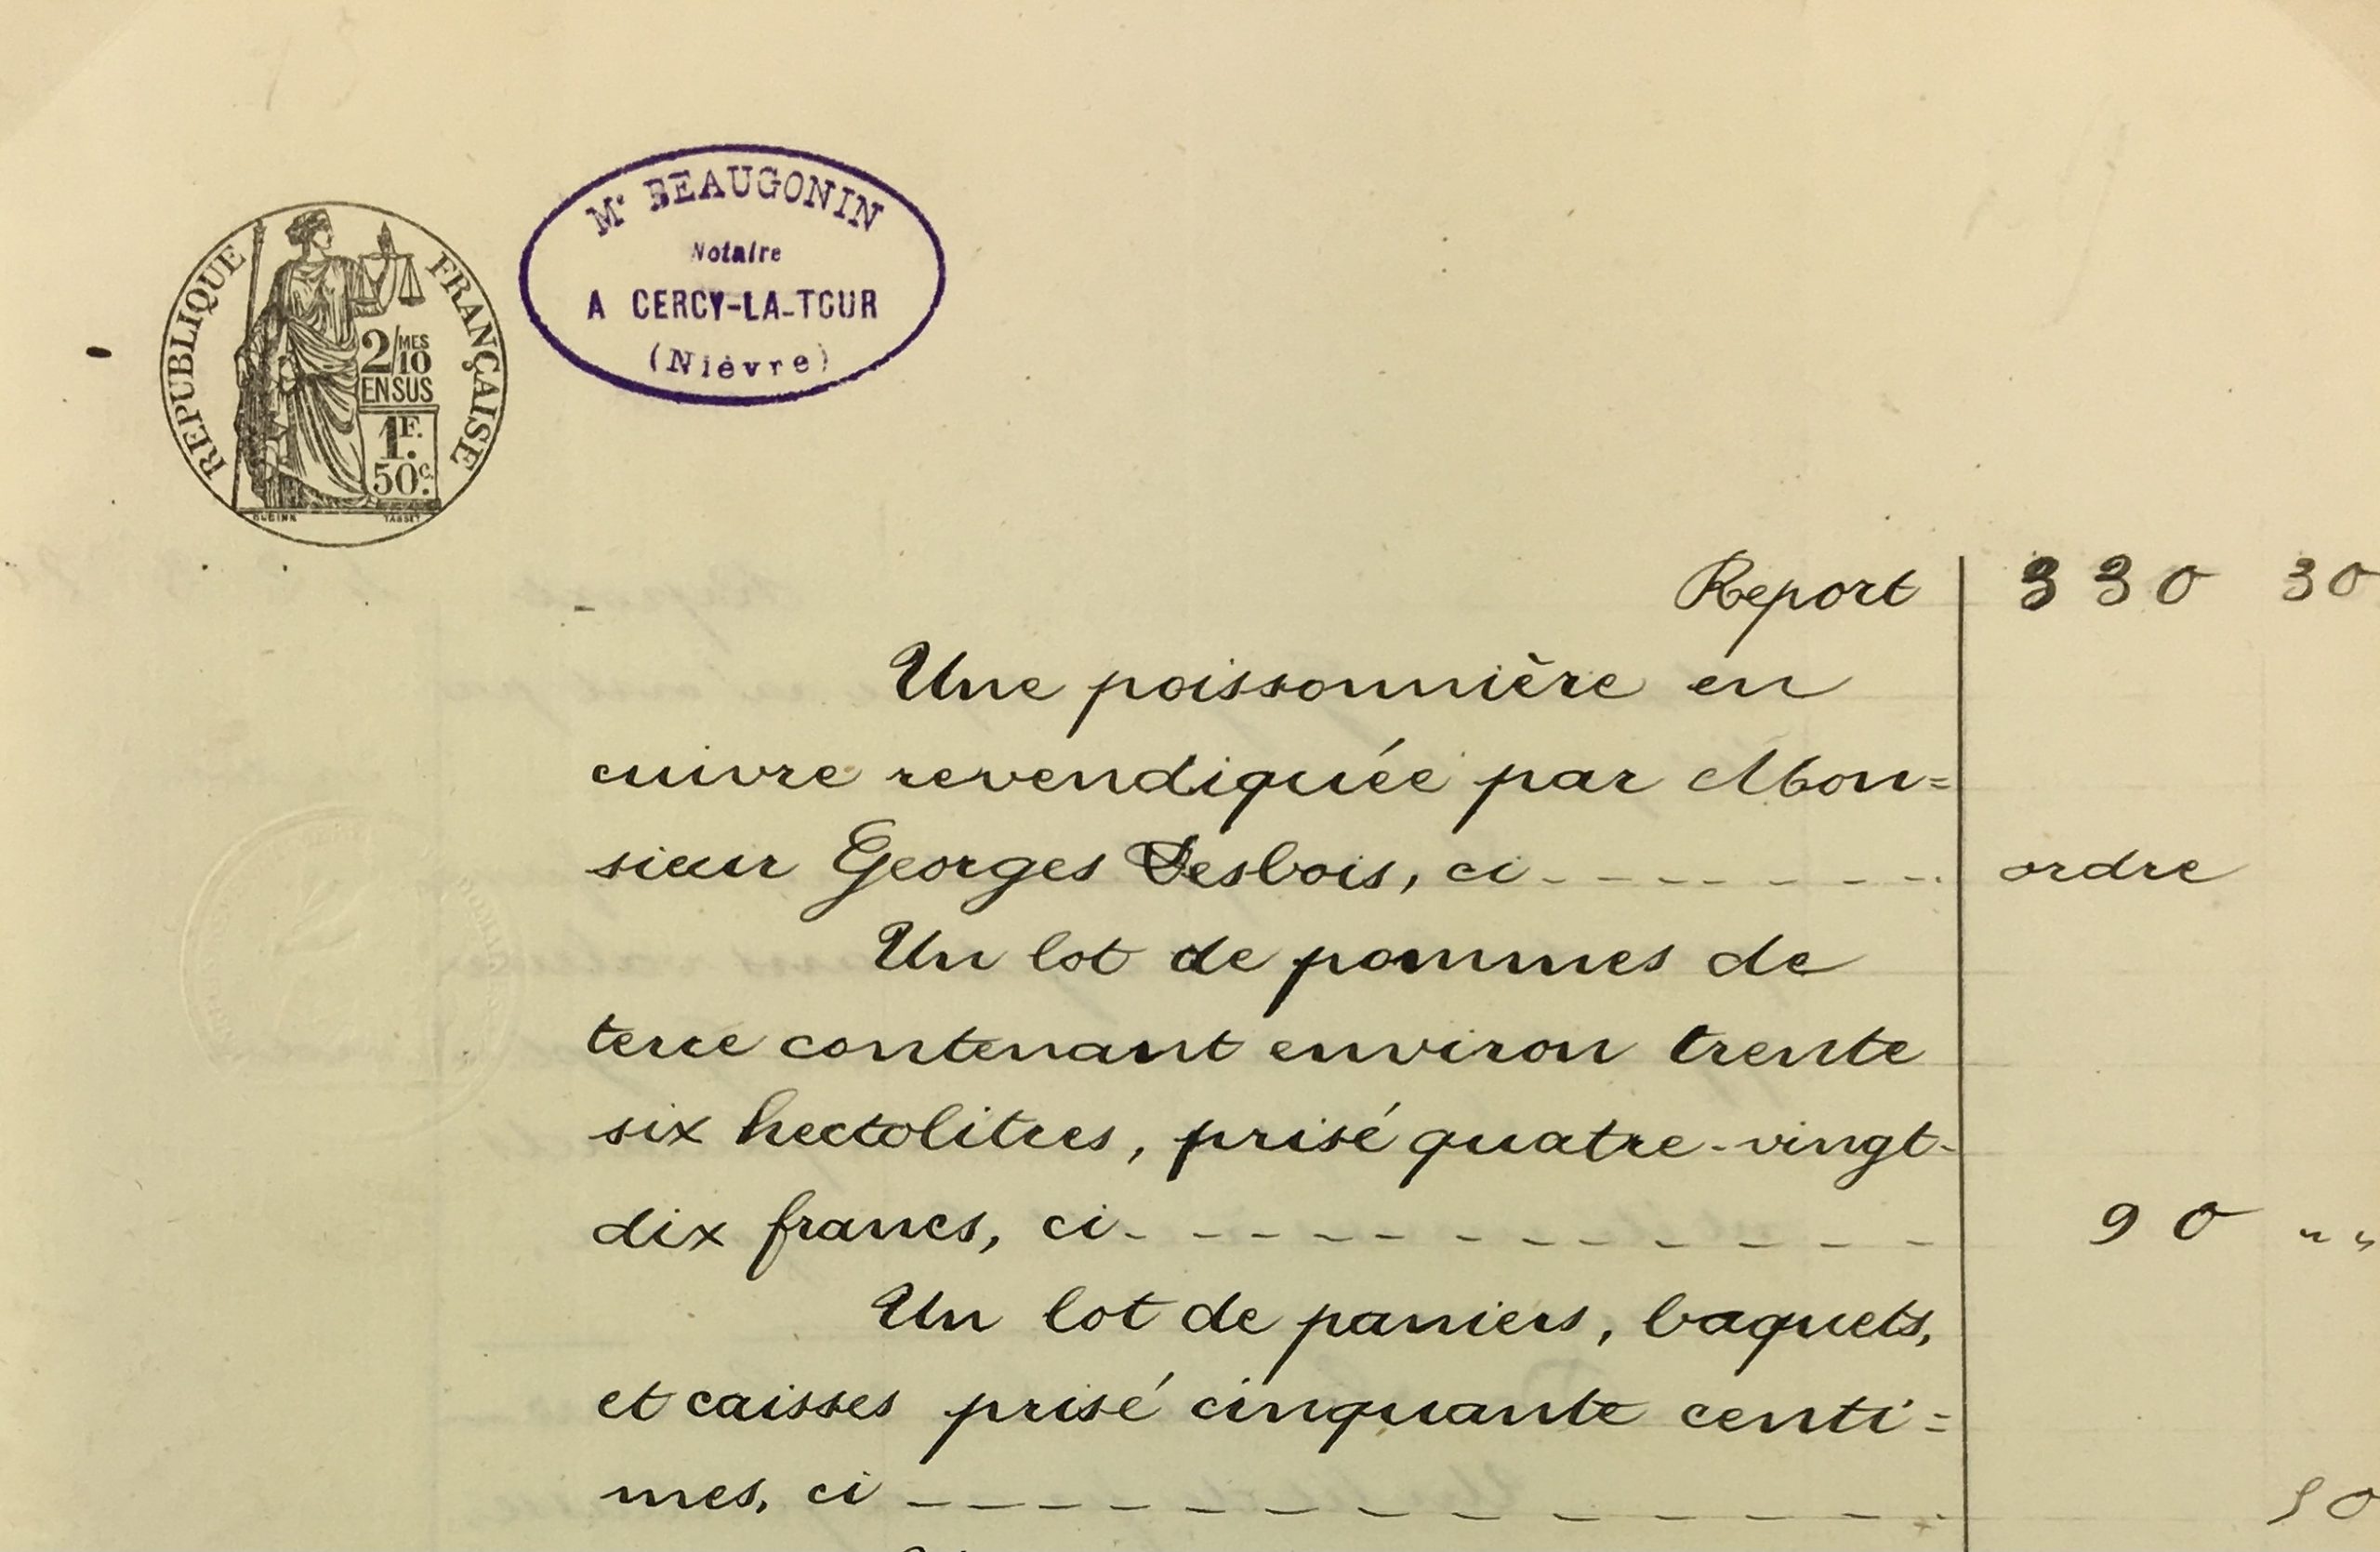 RÉPUBLIQUE FRANÇAISE
2/10 MES
EN SUS
1F.
50c.
TASSET
Me BEAUGONIN
Notaire
A CERCY-LA-TOUR
(Nièvre)
Report 330 30
Une poissonnière en
cuivre revendiquée par Mon=
sieur Georges Desbois, ci - - - - - - - ordre
Un lot de pommes de
terre contenant environ trente
six hectolitres, prisé quatre-vingt-
dix francs, ci - - - - - - - - - - - 90 " "
Un lot de paniers, baquets,
et caisses prisé cinquante centi=
mes, ci - - - - - - - - - - - - - 50